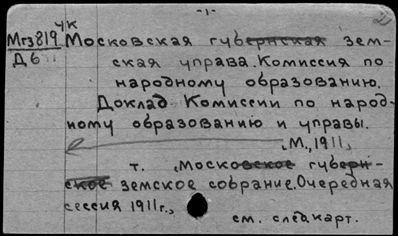 -1-
2
УК
Мгз819 Московская губернская зем-
Д6 ская управа. Комиссия по
народному образованию.
Доклад Комиссии по народ-
ному образованию и управы.
М., 1911.
т. , Московское губерн-
ское земское собрание. Очередная
сессия 1911 г.,
см. след карт.